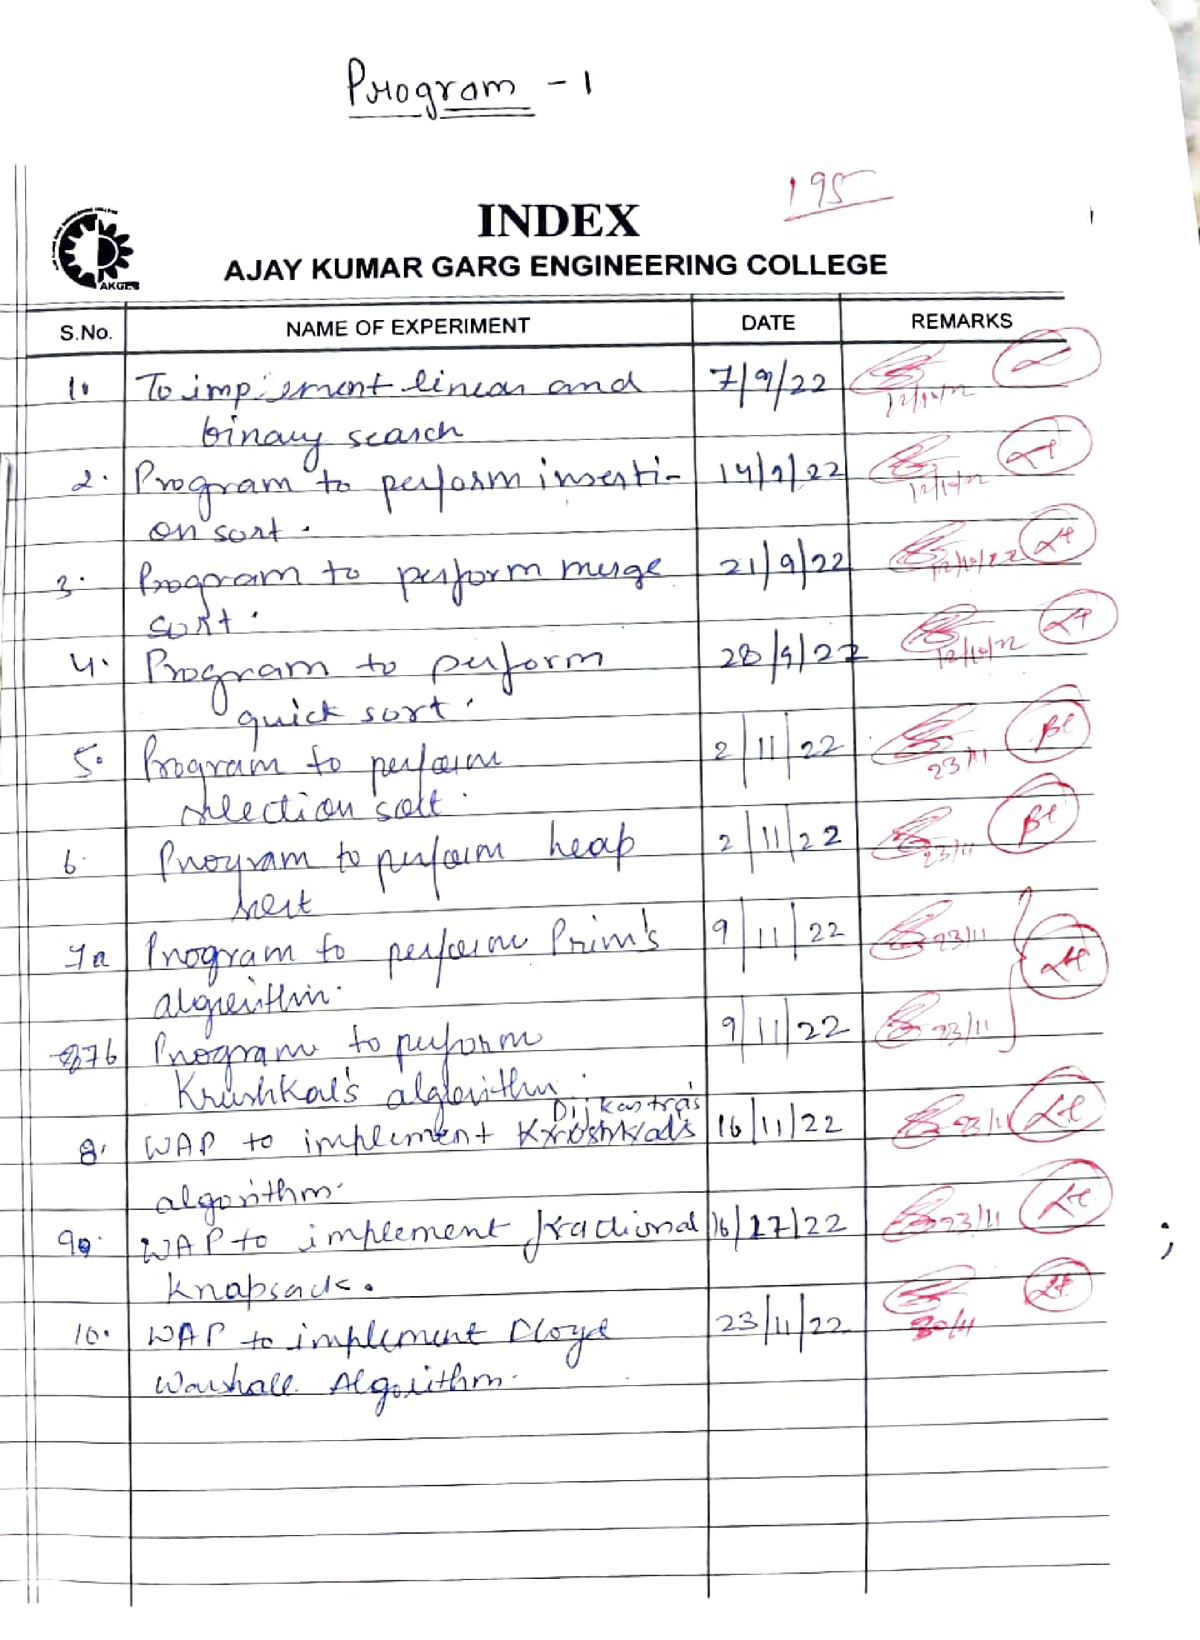 Program - 1
195
INDEX
AKGEC
AJAY KUMAR GARG ENGINEERING COLLEGE
S.No. NAME OF EXPERIMENT DATE REMARKS
1. To implement linear and 7/9/22
12/10/22
binary search
2. Program to perform inserti- 14/9/22
12/10/22
on sort.
3. Program to perform merge 21/9/22
12/10/22
sort.
4. Program to perform 28/9/22
12/10/22
quick sort.
5. Program to perform 2/11/22
23/11
selection sort.
6. Program to perform heap 2/11/22
23/11
sort
7a Program to perform Prim's 9/11/22 23/11
algorithm.
7b Program to perform 9/11/22 23/11
Krushkal's algorithm.
Dijkastra's
8. WAP to implement Krushkal's 16/11/22 23/11
algorithm.
9. WAP to implement fractional 16/17/22 23/11
Knapsack.
10. WAP to implement Floyd 23/11/22 30/11
Warshall Algorithm.